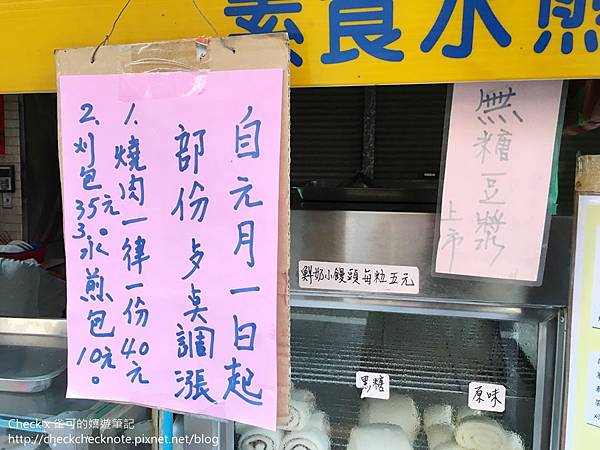 素食水煎
自元月一日起
部份歺桌調漲
1. 燒肉一律一份40元
2. 刈包35元。
3. 水煎包10元。
無糖豆漿
上市
鮮奶小饅頭每粒五元
黑糖
原味
Check x 雀可的嬉遊筆記
http://checkchecknote.pixnet.net/blog